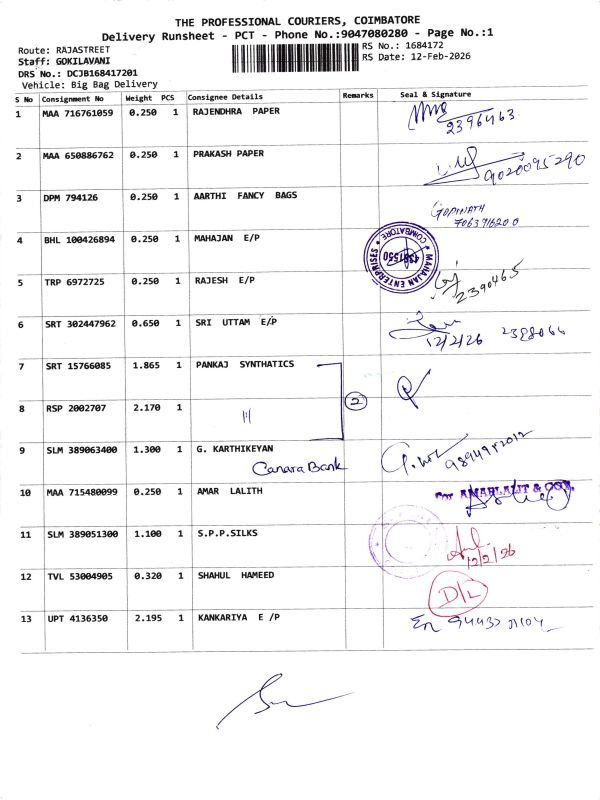 THE PROFESSIONAL COURIERS, COIMBATORE
Delivery Runsheet - PCT - Phone No.:9047080280 - Page No.:1
Route: RAJASTREET
RS No.: 1684172
Staff: GOKILAVANI
RS Date: 12-Feb-2026
DRS No.: DCJB168417201
Vehicle: Big Bag Delivery
S No Consignment No Weight PCS Consignee Details Remarks Seal & Signature
1 MAA 716761059 0.250 1 RAJENDHRA PAPER 2396463
2 MAA 650886762 0.250 1 PRAKASH PAPER 9020095290
3 DPM 794126 0.250 1 AARTHI FANCY BAGS GOPINATH
4 BHL 100426894 0.250 1 MAHAJAN E/P MAHAJAN ENTERPRISES COIMBATORE 4381550
5 TRP 6972725 0.250 1 RAJESH E/P 2390465
6 SRT 302447962 0.650 1 SRI UTTAM E/P 12/2/26
7 SRT 15766085 1.865 1 PANKAJ SYNTHATICS
2
8 RSP 2002707 2.170 1
9 SLM 389063400 1.300 1 G. KARTHIKEYAN
Canara Bank
10 MAA 715480099 0.250 1 AMAR LALITH For AMARLALIT & CO.
11 SLM 389051300 1.100 1 S.P.P.SILKS 12/2/26
12 TVL 53004905 0.320 1 SHAHUL HAMEED D/L
13 UPT 4136350 2.195 1 KANKARIYA E /P